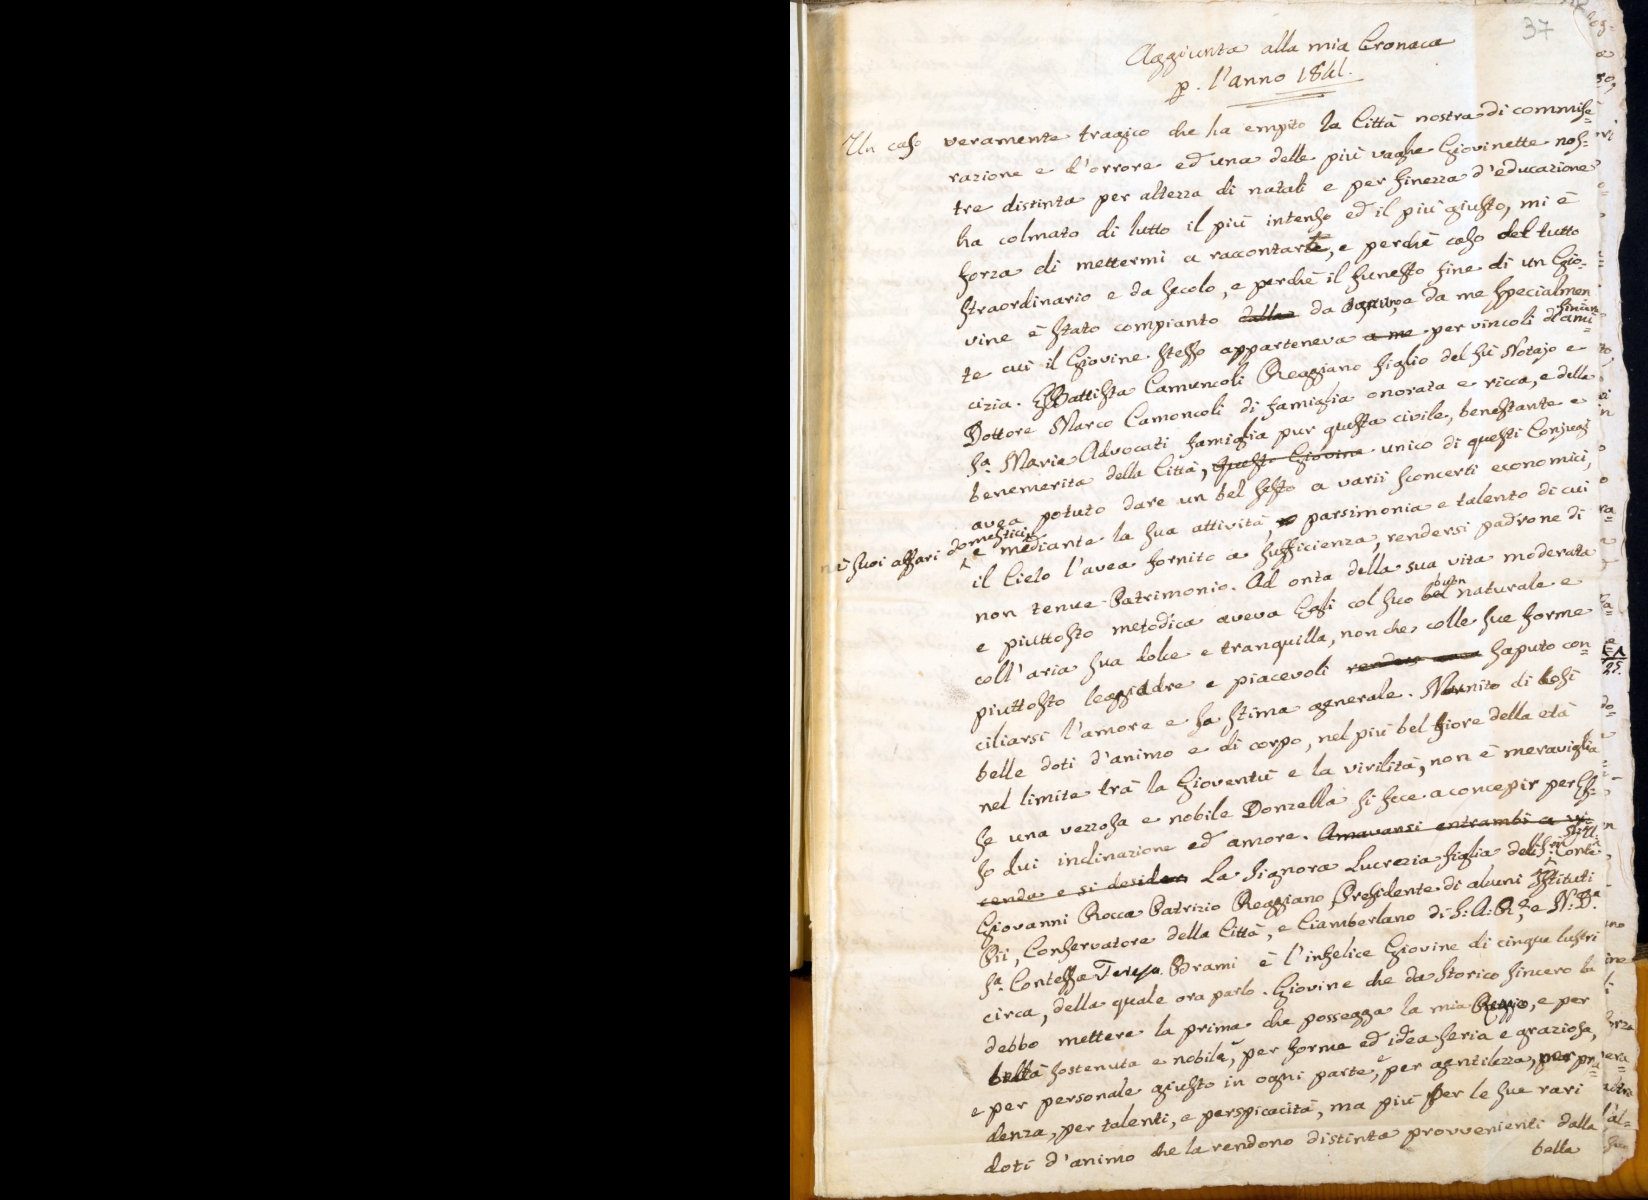 37
Aggiunta alla mia Cronaca
p. l'anno 1841.
Un caso veramente tragico che ha empito la Città nostra di commise=
razione e d'orrore ed una delle più vaghe Giovinette nos=
tre distinta per altezza di natali e per finezza d'educazione
ha colmato di lutto il più intenso ed il più giusto, mi è
forza di mettermi a raccontarlo, e perchè caso del tutto
straordinario e da secolo, e perchè il funesto fine di un Gio-
vine è stato compianto dalla da e da me specialmen
te cui il Giovine stesso apparteneva a me per vincoli di sincera ami
cizia. GBattista Camuncoli Reggiano figlio del fù Notajo e
Dottore Marco Camoncoli di famiglia onorata e ricca, e della
Sa. Maria Advocati famiglia pur questa civile, benestante e
benemerita della Città, questo Giovine unico di questi Conjugi
avea potuto dare un bel sesto a varii sconcerti economici,
nè suoi affari domestici e mediante la sua attività, parsimonia e talento di cui
il Cielo l'avea fornito a sufficienza, rendersi padrone di
non tenue Patrimonio. Ad onta della sua vita moderata
e piuttosto metodica aveva Egli col suo bel buon naturale e
coll'aria sua dolce e tranquilla, non che colle sue forme
piuttosto leggiadre e piacevoli saputo con=
ciliarsi l'amore e la stima generale. Munito di così
belle doti d'animo e di corpo, nel più bel fiore della età
nel limite trà la Gioventù e la virilità, non è meraviglia
se una vezzosa e nobile Donzella si fece a concepir per Es=
so lui inclinazione ed amore. Amavansi entrambi a vi=
cenda e si desider La Signora Lucrezia figlia del Sr. Conte
Giovanni Rocca Patrizio Reggiano, Presidente di alcuni Istituti
Pii, Conservatore della Città, e Ciamberlano di S: A: R:, e N: D:
Sa. Contessa Teresa Prami è l'infelice Giovine di cinque lustri
circa, della quale ora parlo. Giovine che da Storico sincero la
debbo mettere la prima che possegga la mia Reggio, e per
beltà sostenuta e nobile, per forme ed idea seria e graziosa,
e per personale giusto in ogni parte, e per gentilezza, per pru=
denza, per talenti, e perspicacità, ma più per le sue rari
doti d'animo che la rendono distinta provvenienti dalla
bella